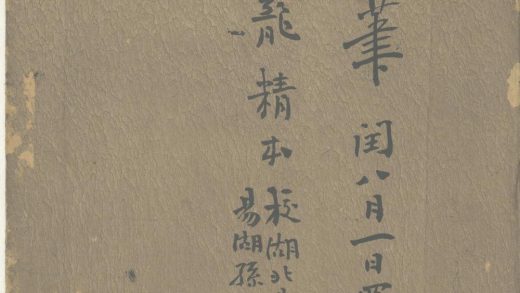 筆 閏八月一日
龍精本
校湖北
易湖孫